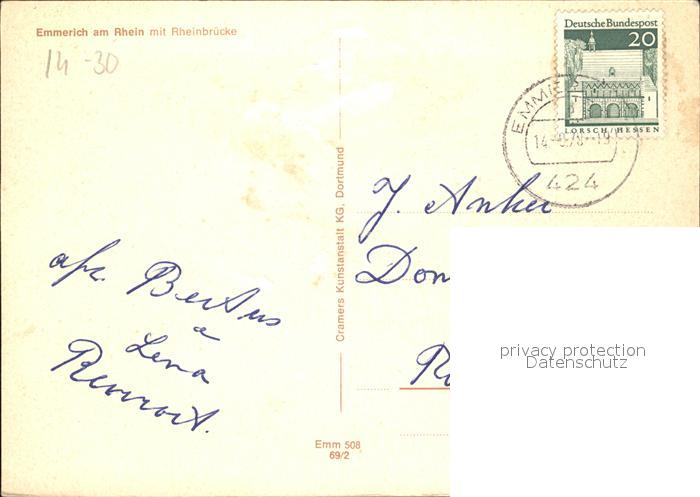 Emmerich am Rhein mit Rheinbrücke
14-30
Deutsche Bundespost
20
LORSCH/HESSEN
424
Cramers Kunstanstalt KG, Dortmund
J. Anker
afz. Bertus
a
Lena
Emm 508
69/2
privacy protection
Datenschutz